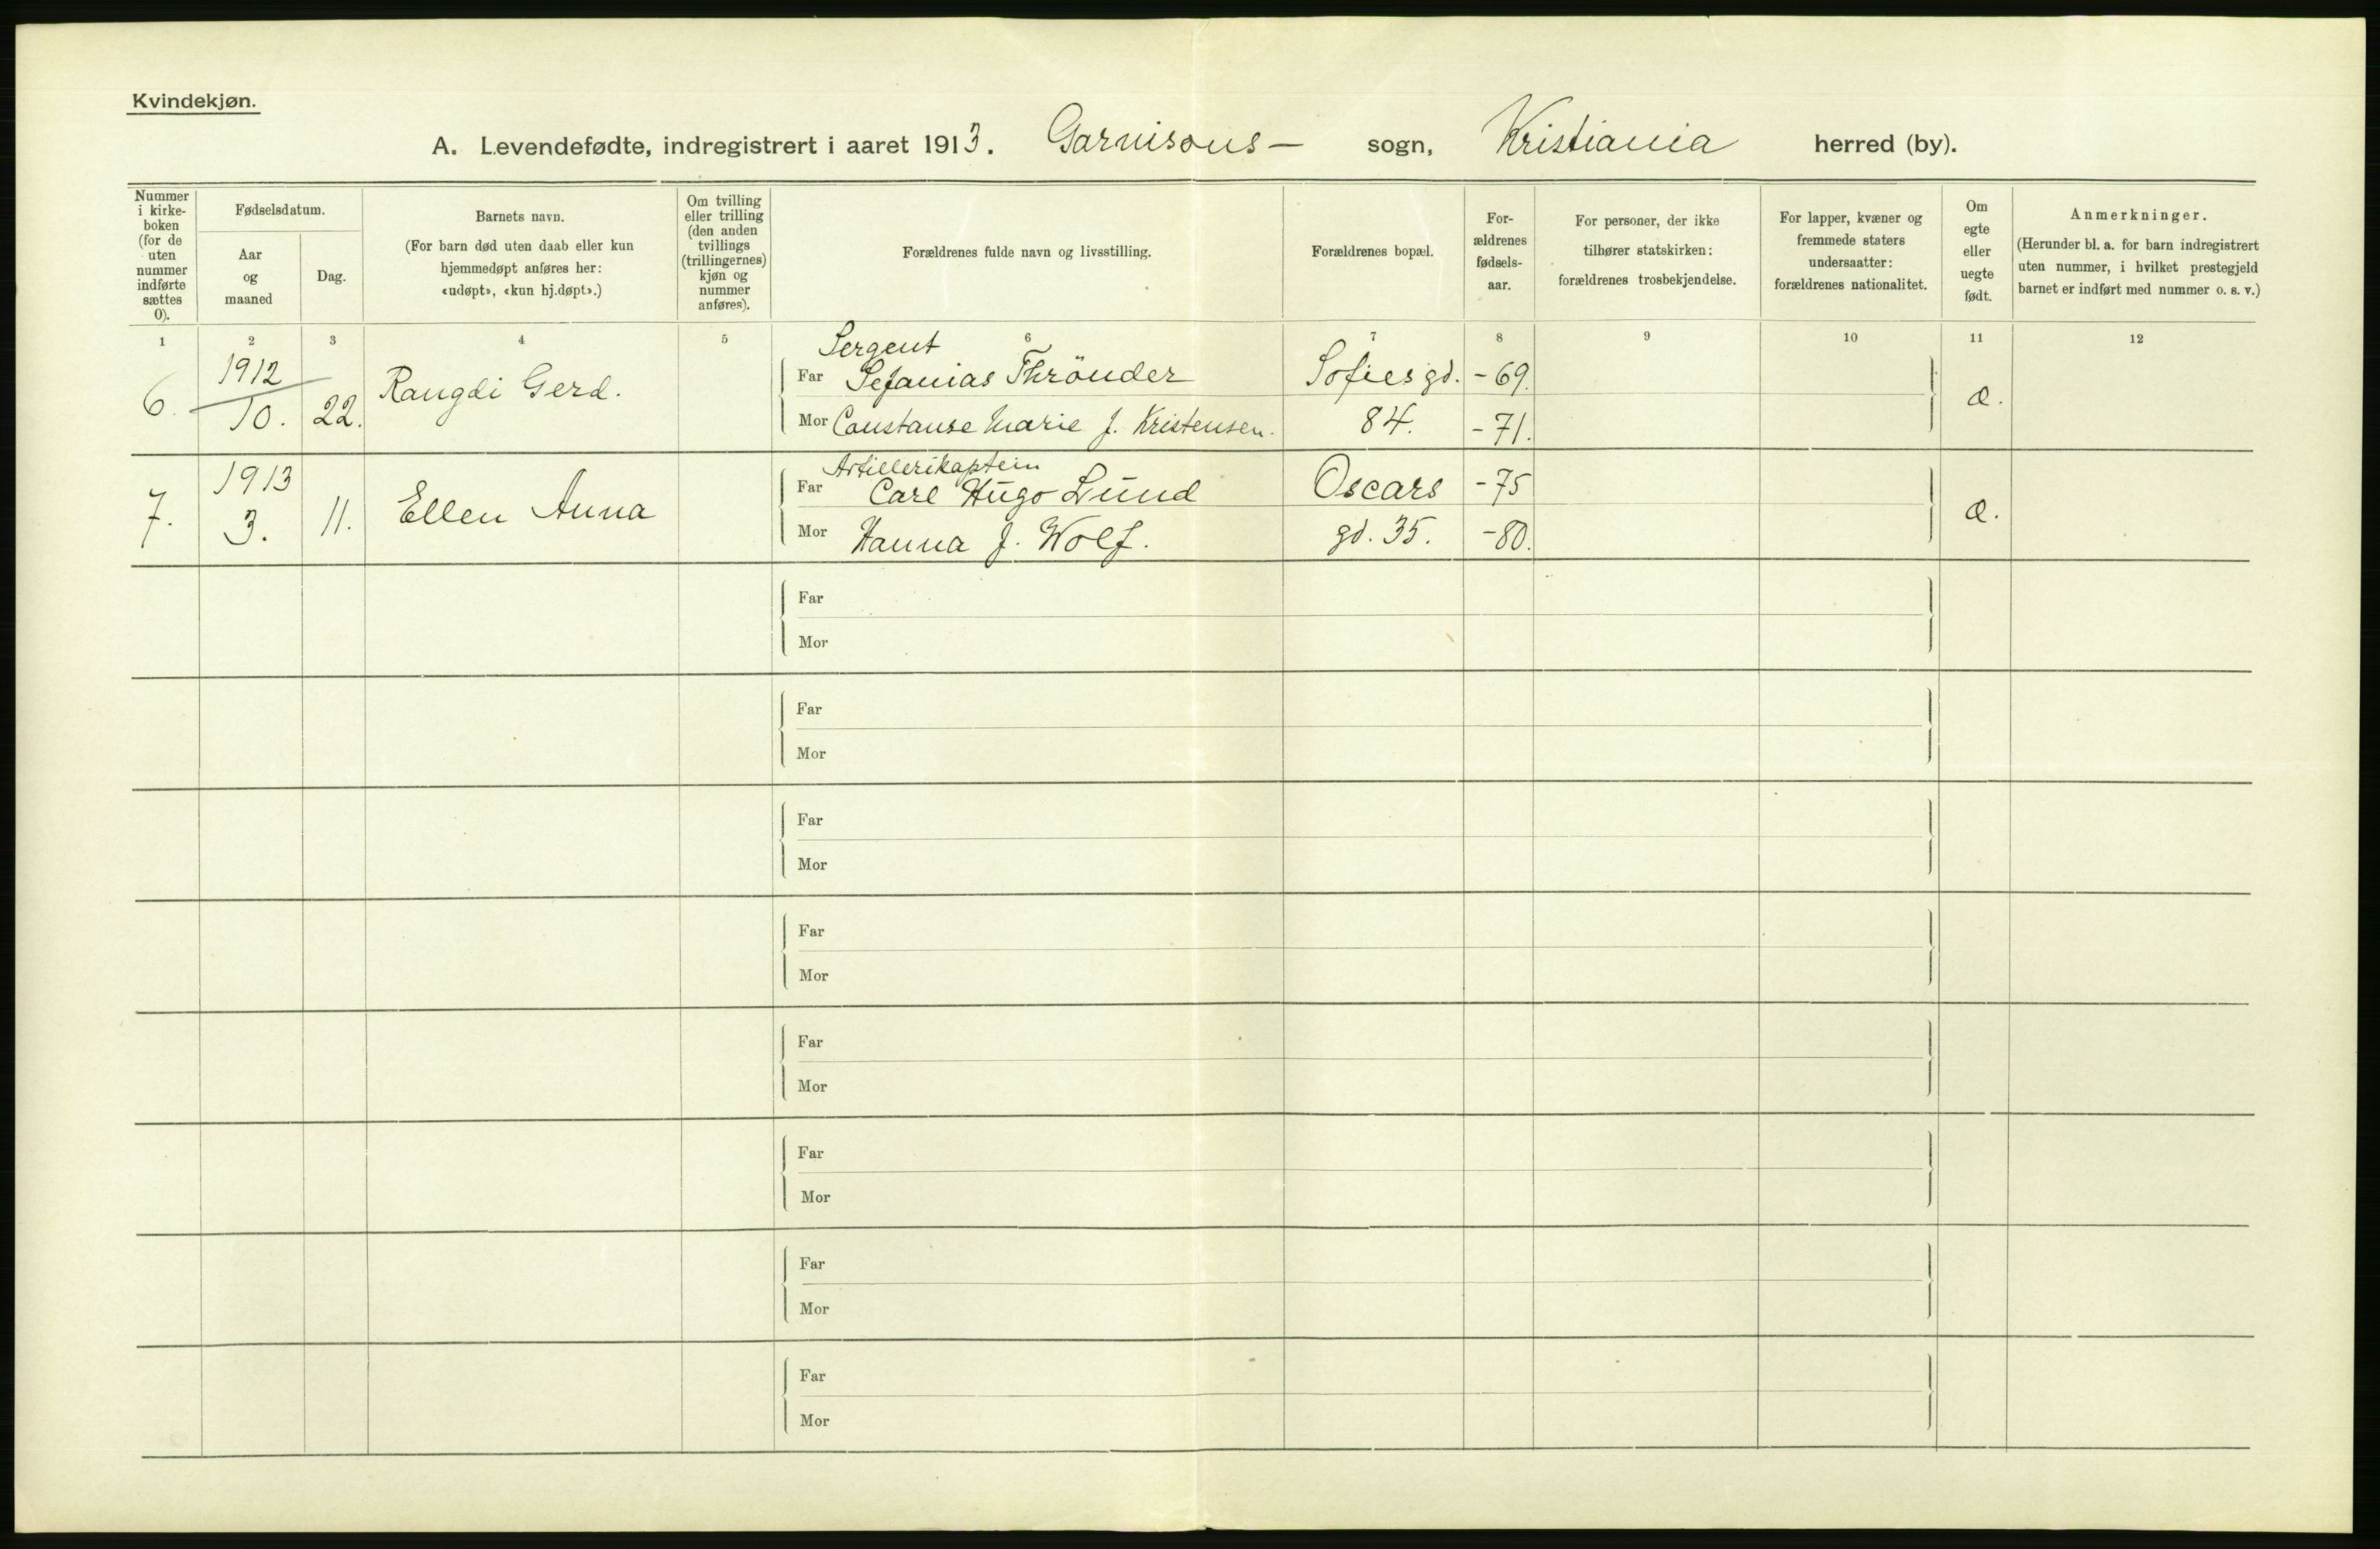 Kvindekjøn.
A. Levendefødte, indregistrert i aaret 1913. Garnisons- sogn, Kristiania herred (by).
Nummer
i kirke-
boken
(for de
uten
nummer
indførte
sættes
0).
Fødselsdatum.
Aar
og
maaned
Dag.
Barnets navn.
(For barn død uten daab eller kun
hjemmedøpt anføres her:
«udøpt», «kun hj.døpt».)
Om tvilling
eller trilling
(den anden
tvillings
(trillingernes)
kjøn og
nummer
anføres).
Forældrenes fulde navn og livsstilling.
Forældrenes bopæl.
For-
ældrenes
fødsels-
aar.
For personer, der ikke
tilhører statskirken:
forældrenes trosbekjendelse.
For lapper, kvæner og
fremmede staters
undersaatter:
forældrenes nationalitet.
Om
egte
eller
uegte
født.
Anmerkninger.
(Herunder bl. a. for barn indregistrert
uten nummer, i hvilket prestegjeld
barnet er indført med nummer o. s. v.)
1 2 3 4 5 6 7 8 9 10 11 12
6.
1912
10.
22.
Rangdi Gerd.
Sergent
Far Sefanias Thrönder
Mor Constanse Marie f. Kristensen.
Sofies gd.
84.
-69.
-71.
æ.
7.
1913
3.
11.
Ellen Anna
Artillerikaptein
Far Carl Hugo Lund
Mor Hanna f. Wolf.
Oscars
gd. 35.
-75
-80.
æ.
Far
Mor
Far
Mor
Far
Mor
Far
Mor
Far
Mor
Far
Mor
Far
Mor
Far
Mor